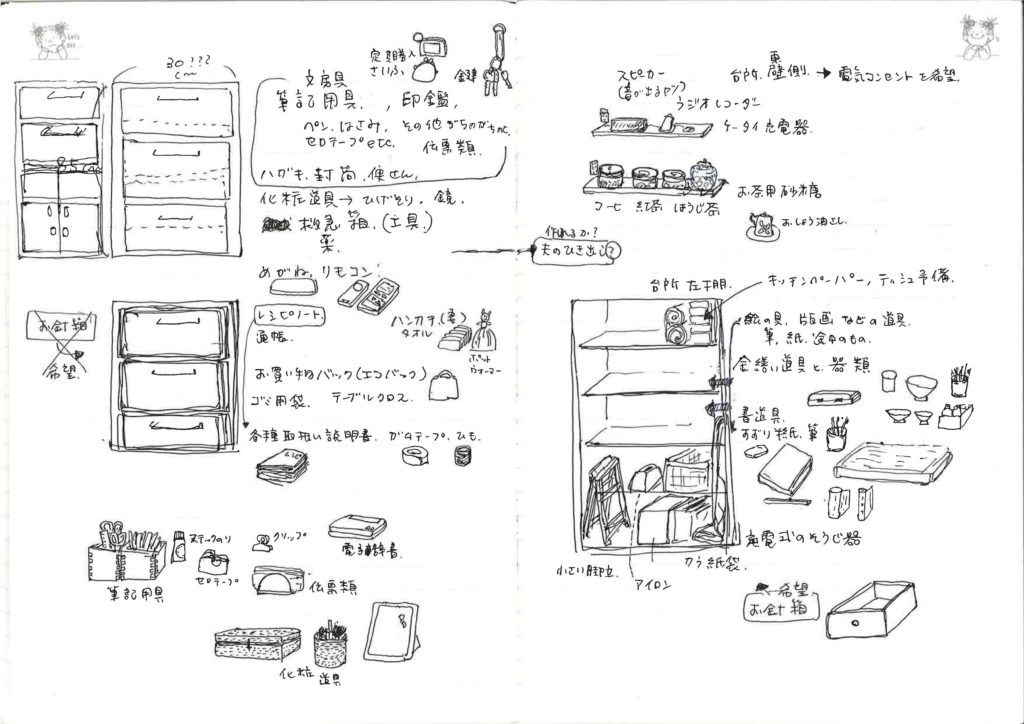 Let's see...
30???
定期購入
さいふ
金鎚
文房具
筆記用具、印鑑、
ペン、はさみ、その他
セロテープetc. 伝票類
ハガキ、封筒、便せん
化粧道具→ひげそり、鏡、
救急箱、(工具)
薬
めがね、リモコン!
レシピノート
通帳
ハンカチ、(妻)
タオル
ポット
ウォーマー
お針箱
希望
お買い物バック(エコバック)
ゴミ用袋、テーブルクロス
各種取扱い説明書、ガムテープ、ひも、
スティックのり
クリップ
電子辞書
セロテープ
筆記用具
伝票類
化粧道具
スピカー
(音が出るヤツ)
台所、東壁側、→電気コンセントを希望、
ラジオレコーダー
ケータイ充電器
コーヒ 紅茶 ほうじ茶
お茶用砂糖
おしょう油さし
作れるか?
夫のひき出し?
台所左
キッチンペーパー、ティシュ予備、
絵の具、版画などの道具、
筆、紙、途中のもの、
金繕い道具と器類
書道具
すずり、半紙、筆
充電式のそうじ器
小さい脚立
アイロン
カラ紙袋
希望、
お針箱